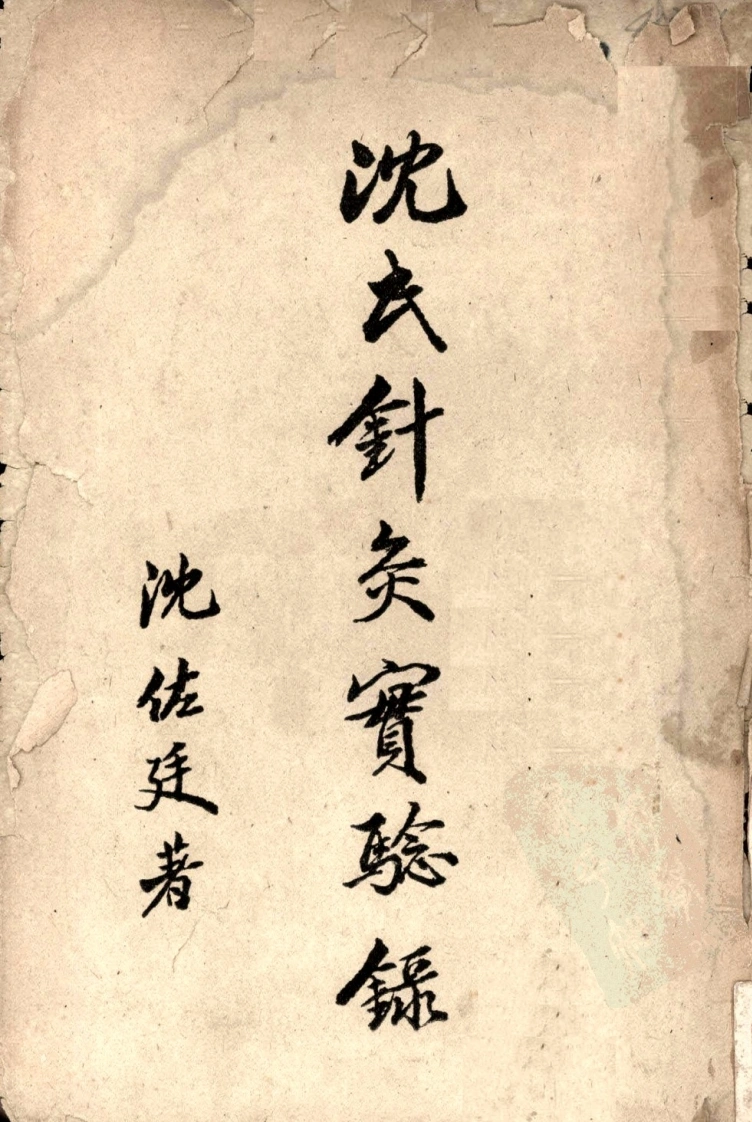 沈氏針灸實騐錄
沈佐廷著